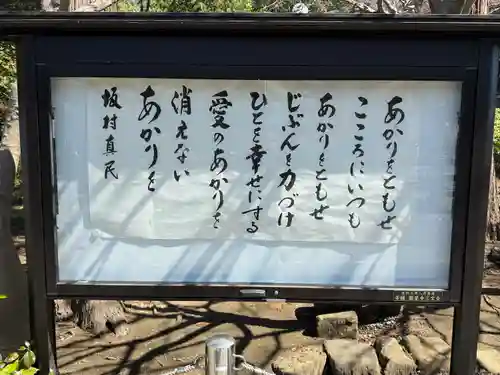 あかりをともせ
こころにいつも
あかりをともせ
じぶんを力づけ
ひとを幸せにする
愛のあかりを
消えない
あかりを
坂村真民